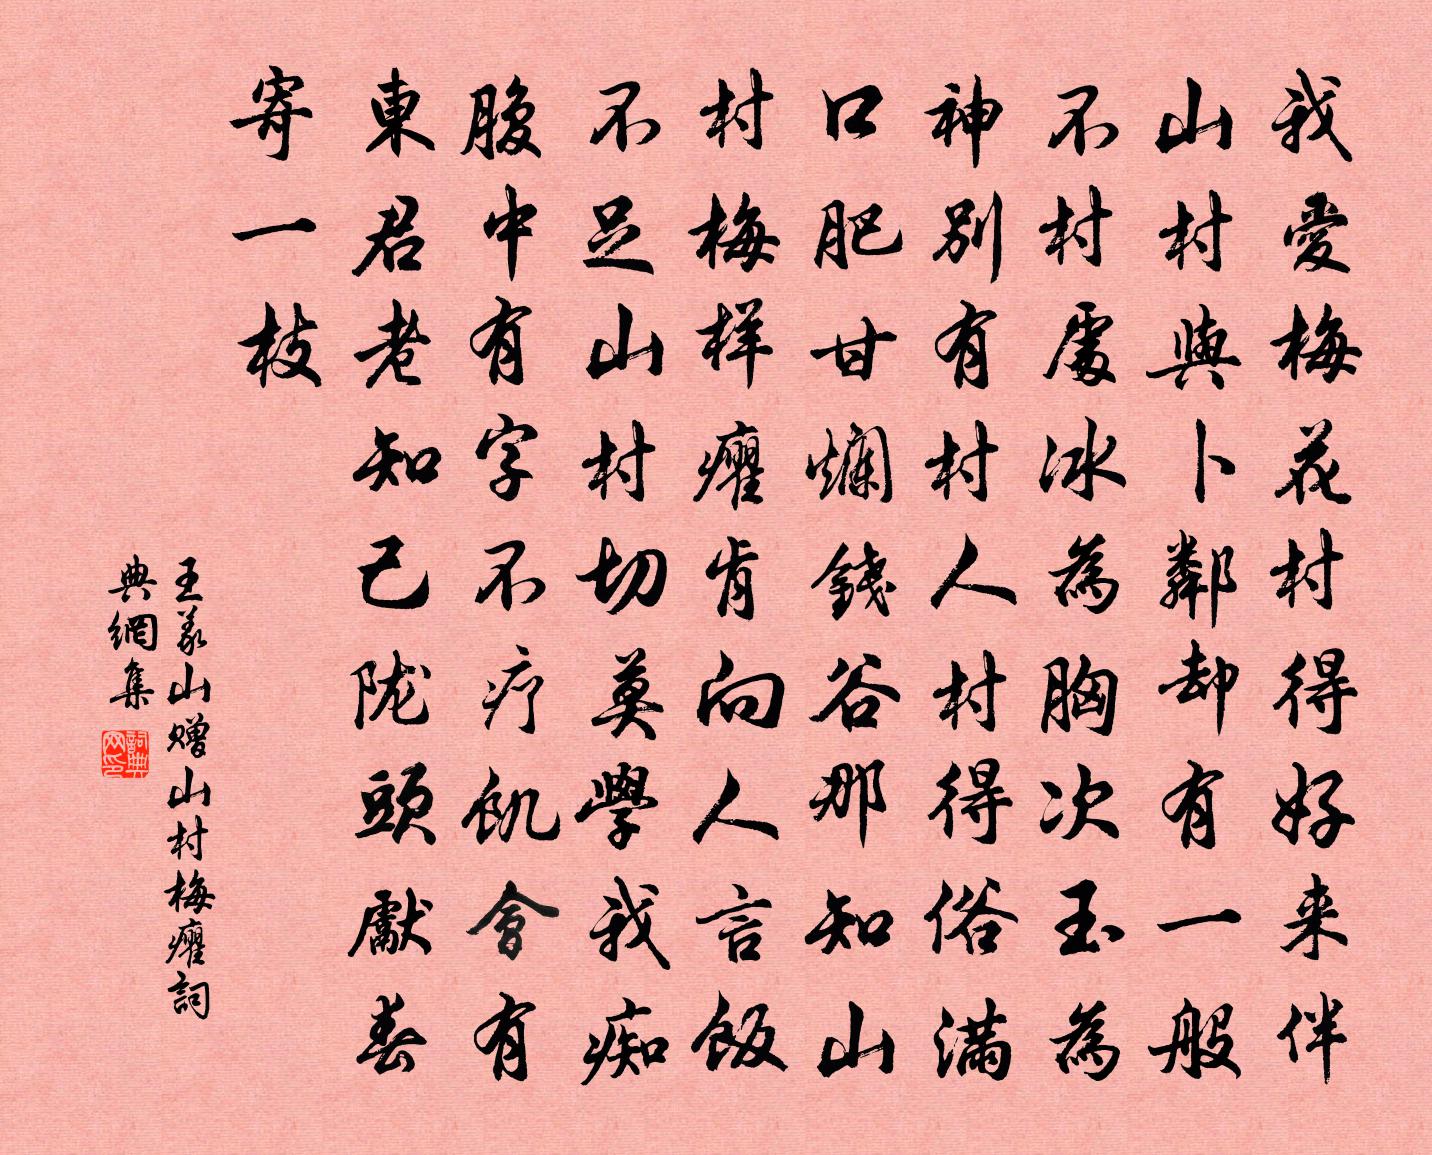 我愛梅花村得好来伴
山村與卜鄰却有一般
不村處冰為胸次玉為
神别有村人村得俗滿
口肥甘爛錢谷那知山
村梅样癯肯向人言飯
不足山村切莫學我痴
腹中有字不疗飢會有
東君老知己陇頭獻春
寄一枝
王義山赠山村梅癯詞
典網集
詞典
网印